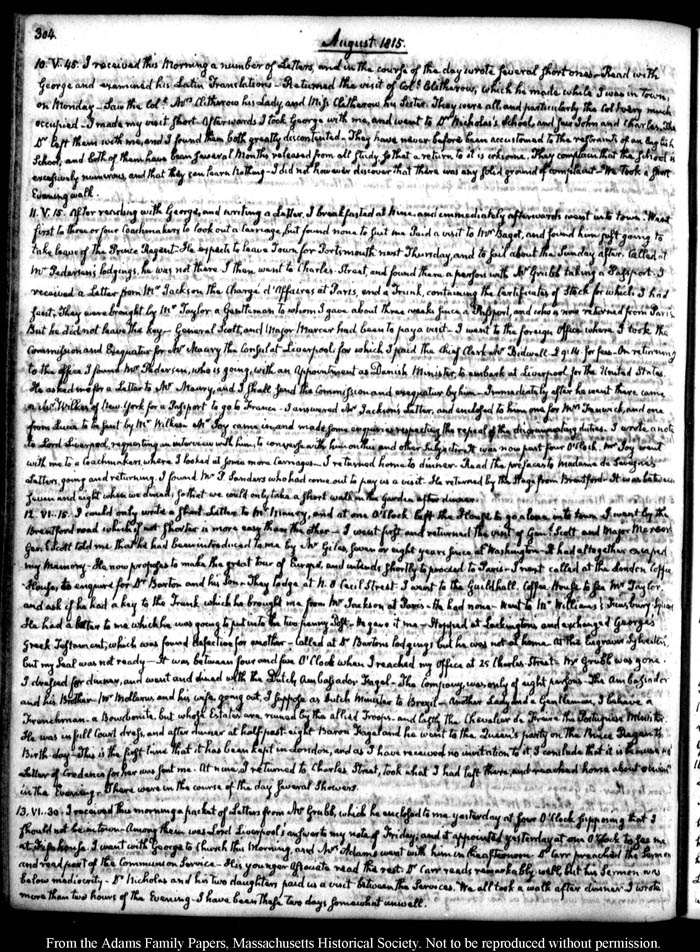 304.
August 1815.
10. V. 45. I received this Morning a number of Letters, and in the course of the day wrote several short ones. Read with
George and examined his Latin Translations. Returned the visit of Coll. Clitherow, which he made while I was in town,
on Monday. Saw the Coll. Mrs. Clitherow his Lady, and Miss Clitherow his Sister. They were all and particularly the Coll. very much
occupied. I made my visit short. Afterwards I took George with me, and went to Dr. Nicholas's School, and saw John and Charles. The
Dr. left them with me, and I found them both greatly discontented. They have never before been accustomed to the restraints of an English
School, and both of them have been several Months released from all study, so that a return to it is irksome. They complain that the School is
excessively numerous, and that they can learn Nothing. I did not however discover that there was any solid ground of complaint. We took a short
Evening walk.
11. V. 15. After reading with George, and writing a Letter, I breakfasted at Nine, and immediately afterwards went into town. Went
first to three or four Coachmakers to look out a carriage, but found none to suit me. Paid a visit to Mr. Bagot, and found him just going to
take leave of the Prince Regent. He expects to leave Town for Portsmouth next Thursday, and to sail about the Sunday after. Called at
Mr. Pedersen's lodgings, he was not there. I then went to Charles Street, and found there a person with Mr. Grubb taking a Passport. I
received a Letter from Mr. Jackson the Chargé d'Affaires at Paris, and a Trunk, containing the Certificates of Stock for which I had
sent. They were brought by Mr. Taylor a Gentleman to whom I gave about three weeks since a Passport, and who is now returned from Paris.
But he did not leave the key. General Scott, and Major Mercer had been to pay a visit. I went to the foreign Office where I took the
Commission and Exequatur for Mr. Maury the Consul at Liverpool; for which I paid the chief Clerk Mr. Bidwell for fees. On returning
to the office I found Mr. Pedersen, who is going, with an Appointment as Danish Minister, to embark at Liverpool for the United States.
He asked me for a Letter to Mr. Maury, and I shall send the Commission and exequatur by him. Immediately after he went there came
a Mr. Wilkes of New York for a Passport to go to France. I answered Mr. Jackson's Letter, and enclosed to him one for Mr. Fenwick, and one
from Lucia to be sent by Mr. Wilkes. Mr. Joy came in and made some enquiries respecting the repeal of the discriminating duties. I wrote a note
to Lord Liverpool, requesting an interview with him, to converse with him on this and other subjects. It was now past four O'Clock. Mr. Joy went
with me to a Coachmakers, where I looked at some more Carriages. I returned home to dinner. Read the prefaces to Madame de Sevigné's
Letters, going and returning. I found Mr. Sanders who had come out to pay us a visit. He returned by the Stage from Brentford. It was between
seven and eight when we dined; so that we could only take a short walk in the Garden after dinner.
12. VI. 15. I could only write a short Letter to Mr. Maury, and at one O'Clock left the House to go alone into town. I went by the
Brentford road which if not shorter is more easy than the other. I went first and returned the visit of Genl. Scott and Major Mercer.
Genl. Scott told me that he had been introduced to me by Mr. Giles, seven or eight years since at Washington. It had altogether escaped
my Memory. He now proposes to make the great tour of Europe, and intends shortly to proceed to Paris. I next called at the London Coffee
House, to enquire for Dr. Barton and his Son. They lodge at N. 8 Cecil Street. I went to the Guildhall Coffee House to see Mr. Taylor
and ask if he had a key to the Trunk which he brought me from Mr. Jackson at Paris. He had none. Went to Mr. Williams's Finsbury Square
He had a letter to me which he was going to put into the two penny Post. He gave it me. Stopped at Lackington's and exchanged George's
Greek Testament, which was found defective for another. Called at Dr. Barton's lodgings but he was not at home. At the Engraver Silvester's,
but my Seal was not ready. It was between four and five O'Clock when I reached my Office at 25 Charles Street. Mr. Grubb was gone.
I dressed for dinner, and went and dined with the Dutch Ambassador Fagel. The Company, was only of eight persons. The Ambassador
and his Brother. Mr. Mollerus and his wife going out, I suppose as Dutch Minister to Brazil. Another Lady and a Gentleman, I believe a
Frenchman. a Bourbonite, but whose Estates are ruined by the allied Troops. and lastly the Chevalier de Freire the Portuguese Minister.
He was in full Court dress, and after dinner at half past eight Baron Fagel and he went to the Queen's party on the Prince Regent's
Birth-day. This is the first time that it has been kept in London, and as I have received no invitation to it, I conclude that it is because no
Letter of Credence for her was sent me. At nine, I returned to Charles Street, took what I had left there, and reached home about eleven
in the Evening. There were in the course of the day several Showers.
13. VI. 30. I received this morning a packet of Letters from Mr. Grubb, which he enclosed to me yesterday at four O'Clock supposing that I
should not be in town. Among them was Lord Liverpool's answer to my note of Friday; and it appointed yesterday at one O'Clock to see me
at Fife house. I went with George to Church this Morning, and Mrs. Adams went with him in the afternoon. Dr. Carr preached the Sermon
and read part of the Communion Service. His younger Associate read the rest. Dr. Carr reads remarkably well, but his Sermon was
below mediocrity. Dr. Nicholas and his two daughters paid us a visit between the Services. We all took a walk after dinner. I wrote
more than two hours of the Evening. I have been these two days somewhat unwell.
From the Adams Family Papers, Massachusetts Historical Society. Not to be reproduced without permission.